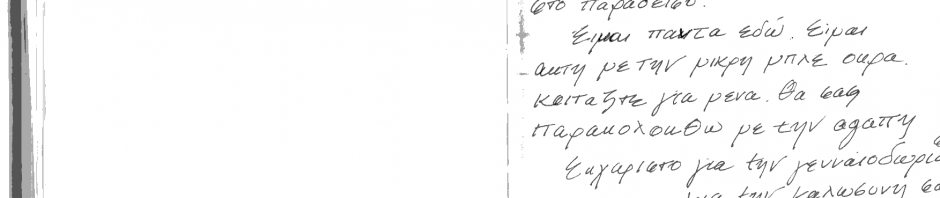 στο παραδεισο.
Ειμαι παντα εδώ. Ειμαι
αυτη με την μικρη μπλε ουρα.
Κοιταξτε για μενα. Θα σας
παρακολουθω με την αγαπη
Ευχαριστο για την γενναιοδωρία
για την καλωσυνη σα